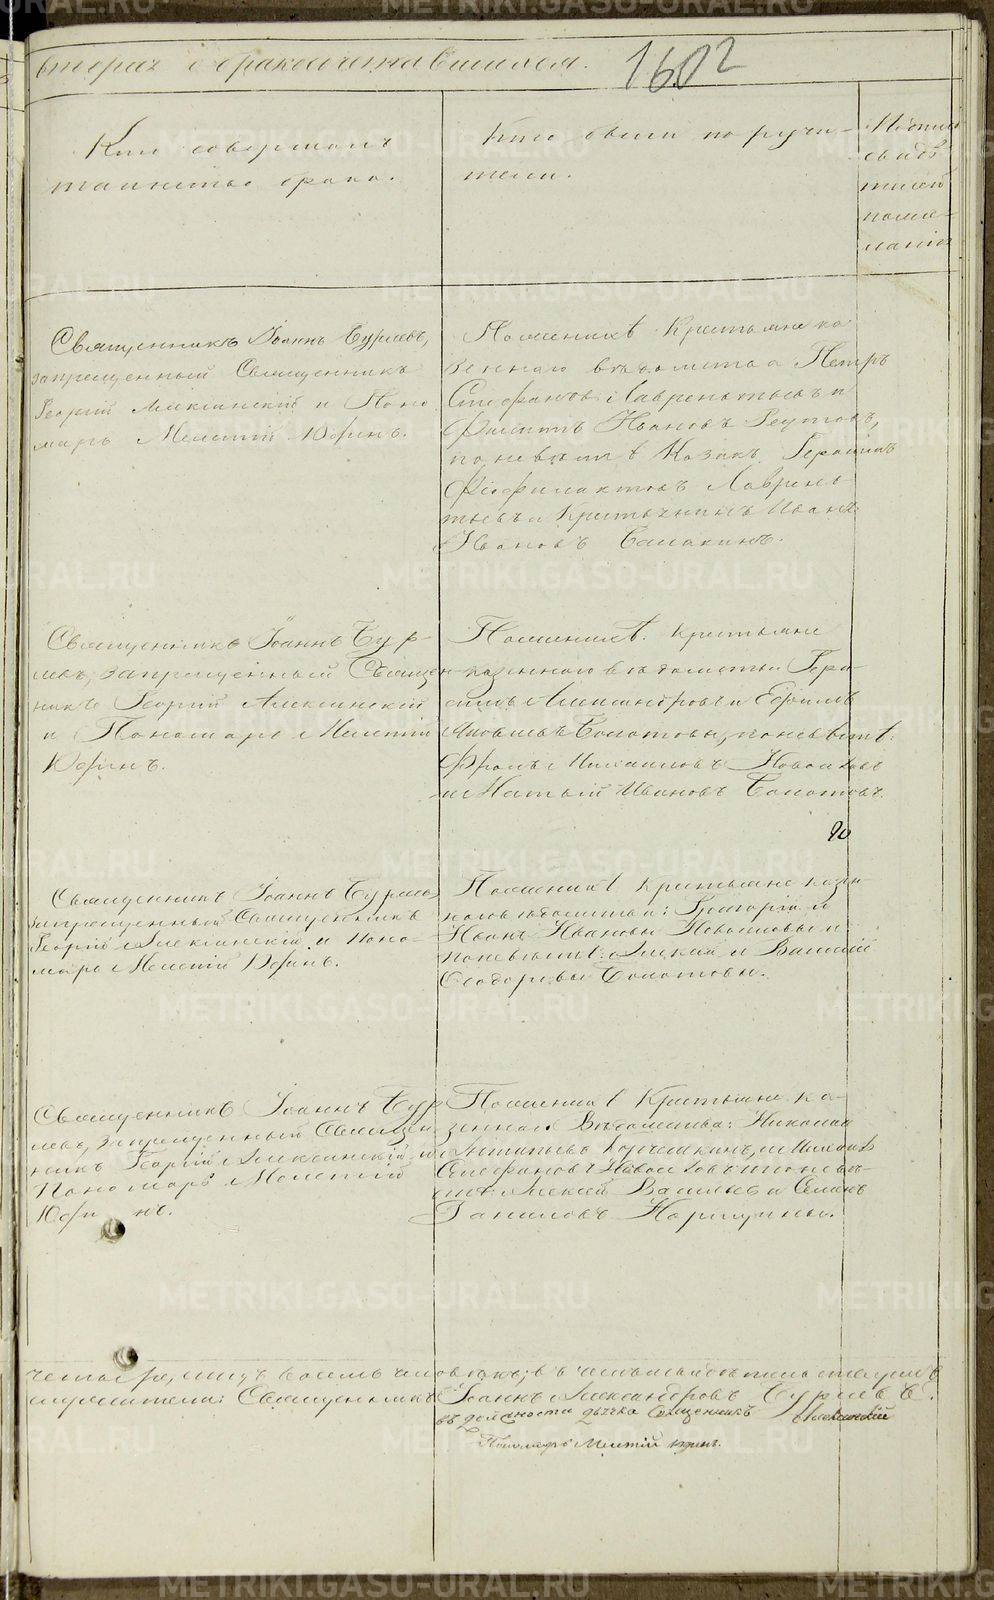 вторая о бракосочетавшихся.
1602
Кто совершалъ
таинство брака.
Кто были поручи-
тели.
свидѣ
телей
по жела-
нію
Священникъ Іоаннъ Бурлевъ,
запрещенный Священникъ
Георгій Алексинскій и Поно
марь Мелетій Юфинъ.
По женихѣ Крестьяне ка
зеннаго вѣдомства Петръ
Стефановъ Лаврентьевъ и
Филиппъ Ивановъ Реутовъ,
по невѣстѣ Казакъ Герасимъ
Феофилактовъ Лаврень-
тьевъ и Крестьянинъ Иванъ
Ивановъ Балакинъ.
Священникъ Іоаннъ Бур-
левъ, запрещенный Священ-
никъ Георгій Алексинскій
и Пономарь Мелетій
Юфинъ.
По женихѣ: Крестьяне
казеннаго вѣдомства Гера-
симъ Александровъ и Ефимъ
Яковлевъ Болотовы, по невѣстѣ:
Фролъ Михаиловъ Новоселовъ
и Игнатій Ивановъ Болотовъ.
Священникъ Іоаннъ Бурлевъ
запрещенный Священникъ
Георгій Алексинскій и Поно-
марь Мелетій Юфинъ.
По женихѣ Крестьяне казен-
наго вѣдомства: Григорій и
Иванъ Ивановы Новоселовы и
по невѣстѣ: Алексѣй и Василій
Ѳеодоровы Болотовы.
Священникъ Іоаннъ Бур
левъ, запрещенный Священ
никъ Георгій Алексинскій и
Пономарь Мелетій
Юфинъ.
По женихѣ Крестьяне ка-
зеннаго Вѣдомства: Николай
Антиповъ и Михаилъ
Стефановъ Новоселовъ по невѣ-
стѣ: Алексѣй Васильевъ и Семенъ
Даниловъ Паршуковы.
четыре, лицъ восемь человѣкъ; въ чемъ и свидѣтельствуемъ
Священникъ Іоаннъ Александровъ Бурлевъ.
въ должности дьячка Священникъ Алексинскій
Пономарь Мелетій Юфинъ.
METRIKI.GASO-URAL.RU